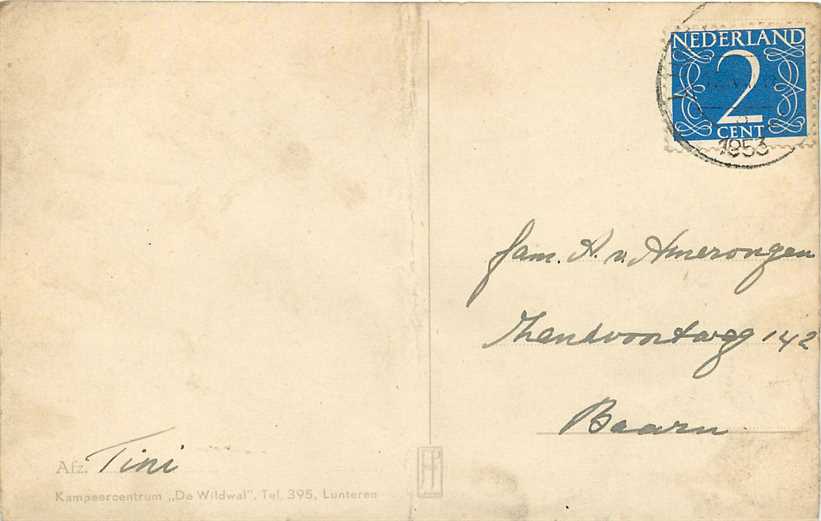 NEDERLAND
2
CENT
1953
fam. A. v. Amerongen
Zandvoortweg 142
Baarn
Afz. Tini
Kampeercentrum „De Wildwal", Tel. 395, Lunteren